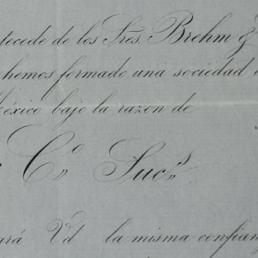 tecede de los Srs. Brehm &
hemos formado una sociedad
éxico bajo la razon de
Co. Sucs.
ará Vd la misma confian